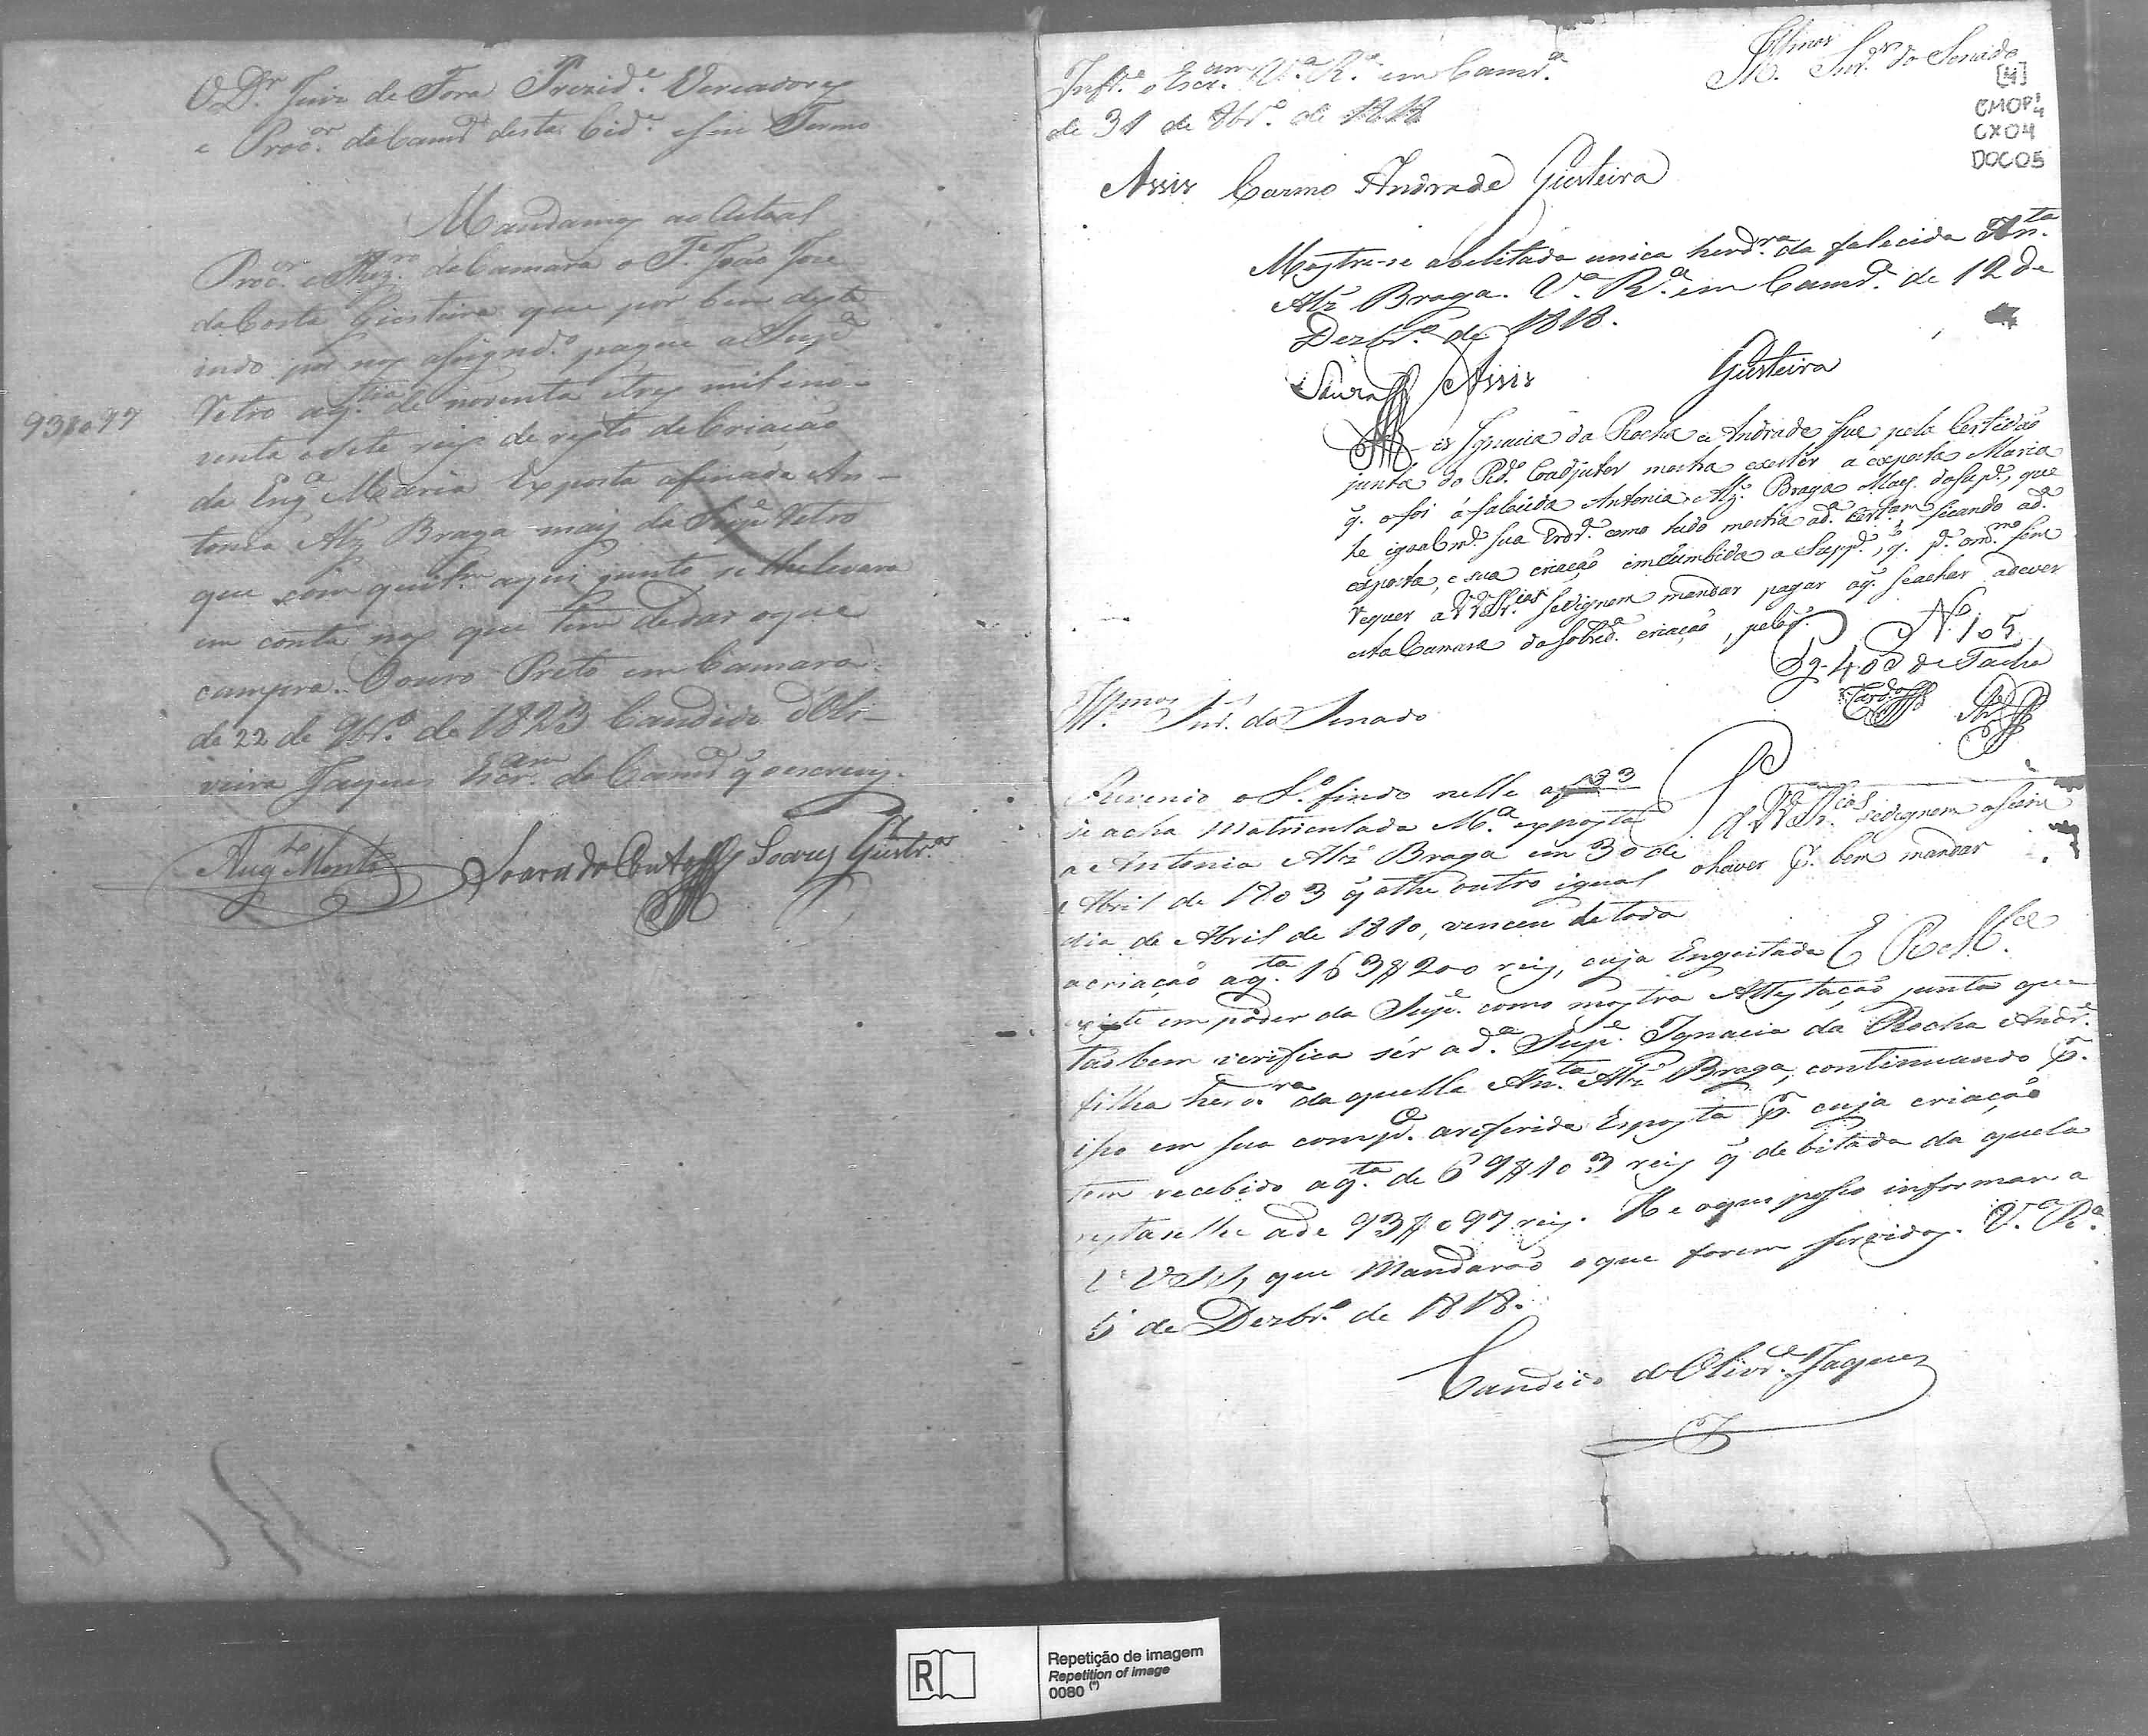 O D.r Juiz de Fora Prezid.e Vereadores
e Proc.or da Camr.a desta Cid.e e seu Termo
Mandamos ao Actual
Proc.or e Thez.ro da Camara o T.e João Joze
da Costa Giesteira que por bem deste
indo por nos asignad.o pague a Sup.e
Retro a q.tia de noventa e tres mil e no-
venta e sete reis de resto de Criação
93$097
da Eng.a Maria Exposta a finada An-
tonia Alz Braga may da Sup.e Retro
que com quit.am aqui junto se lhe levara
em conta nas que tem de dar o que
cumpra. Ouro Preto em Camara
de 22 de 9br.o de 1823 Candido d'Oli-
veira Jaques Escr.am da Camr.a q̃ o escrevy.
Aug.to Monte Soares Giestr.a
Ill.mos Snr.es do Senado
[4]
CMOP
CX04
DOC05
Inf.e o Escr.am V.a R.a em Camr.a
de 31 de 8br.o de 1818
Assis Carmo Andrade Giesteira
Mostre-se abelitada unica herd.ra da falecida An.ta
Alz Braga. V.a R.a em Camr.a de 12 de
Dezbr.o de 1818.
Assis Giesteira
Diz Ignacia da Rocha e Andrade, que pela Certidão
junta do R.d.o Coadjutor mostra existir a exposta Maria
q̃. o foi á falecida Antonia Alz. Braga May da Sup.e, que
he igualm.e sua Erdr.a como tudo mostra a d.a Cert.am, ficando a d.a
exposta, e sua criação incumbida a Supp.e, q̃. p.r em.mo fim
requer a VV S.rias se dignem mandar pagar a q̃ se achar a dever
esta Camara da sobred.a criação, pelo q̃.
N.o 105
Pg. 400 de Taixa
Ill.mos Snr.es do Senado
P. a VV S.rias se dignem asim
o haver p.r bem mandar
E R M.ce
Revendo o L.o findo nelle a f 133
se acha matriculada M.a exposta
a Antonia Alz Braga em 30 de
Abril de 1803 q̃ athe outro igual
dia de Abril de 1810, venceu de toda
a criação a q.ta 163$200 reis, cuja Engeitada
existe em poder da Sup.e como mostra Attestação junta que
tãobem verifica sér a d.a Sup.e Ignacia da Rocha Andr.e
filha herd.ra da quella An.ta Alz Braga, continuando p.r
iso em sua comp.a a referida Exposta p.r cuja criação
tem recebido a q.ta de 69$103 reis q̃ debitada da quela
resta se lhe a de 93$097 reis. He o que poso informar a
VV SS, que Mandarão o que forem servidos. V.a R.a
5 de Dezbr.o de 1818.
Candido d'Olivr.a Jaques
R
Repetição de imagem
Repetition of image
0080 (*)